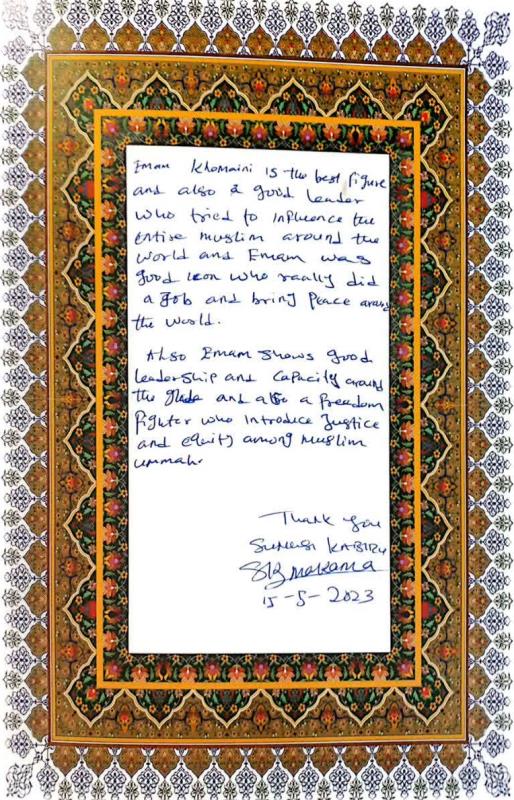 Emam Khomaini is the best figure
and also a good leader
who tried to influence the
entire muslim around the
world and Emam was
good icon who really did
a Job and bring Peace around
the world.
Also Emam shows good
leadership and capacity around
the globe and also a freedom
fighter who introduce Justice
and equity among muslim
ummah.
Thank you
KABIRU
SKB makama
15-5-2023